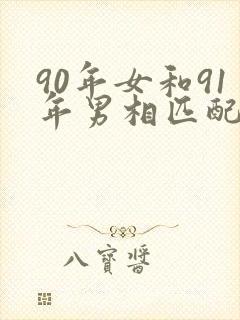 90年女和91
年男相匹配
八寳醬